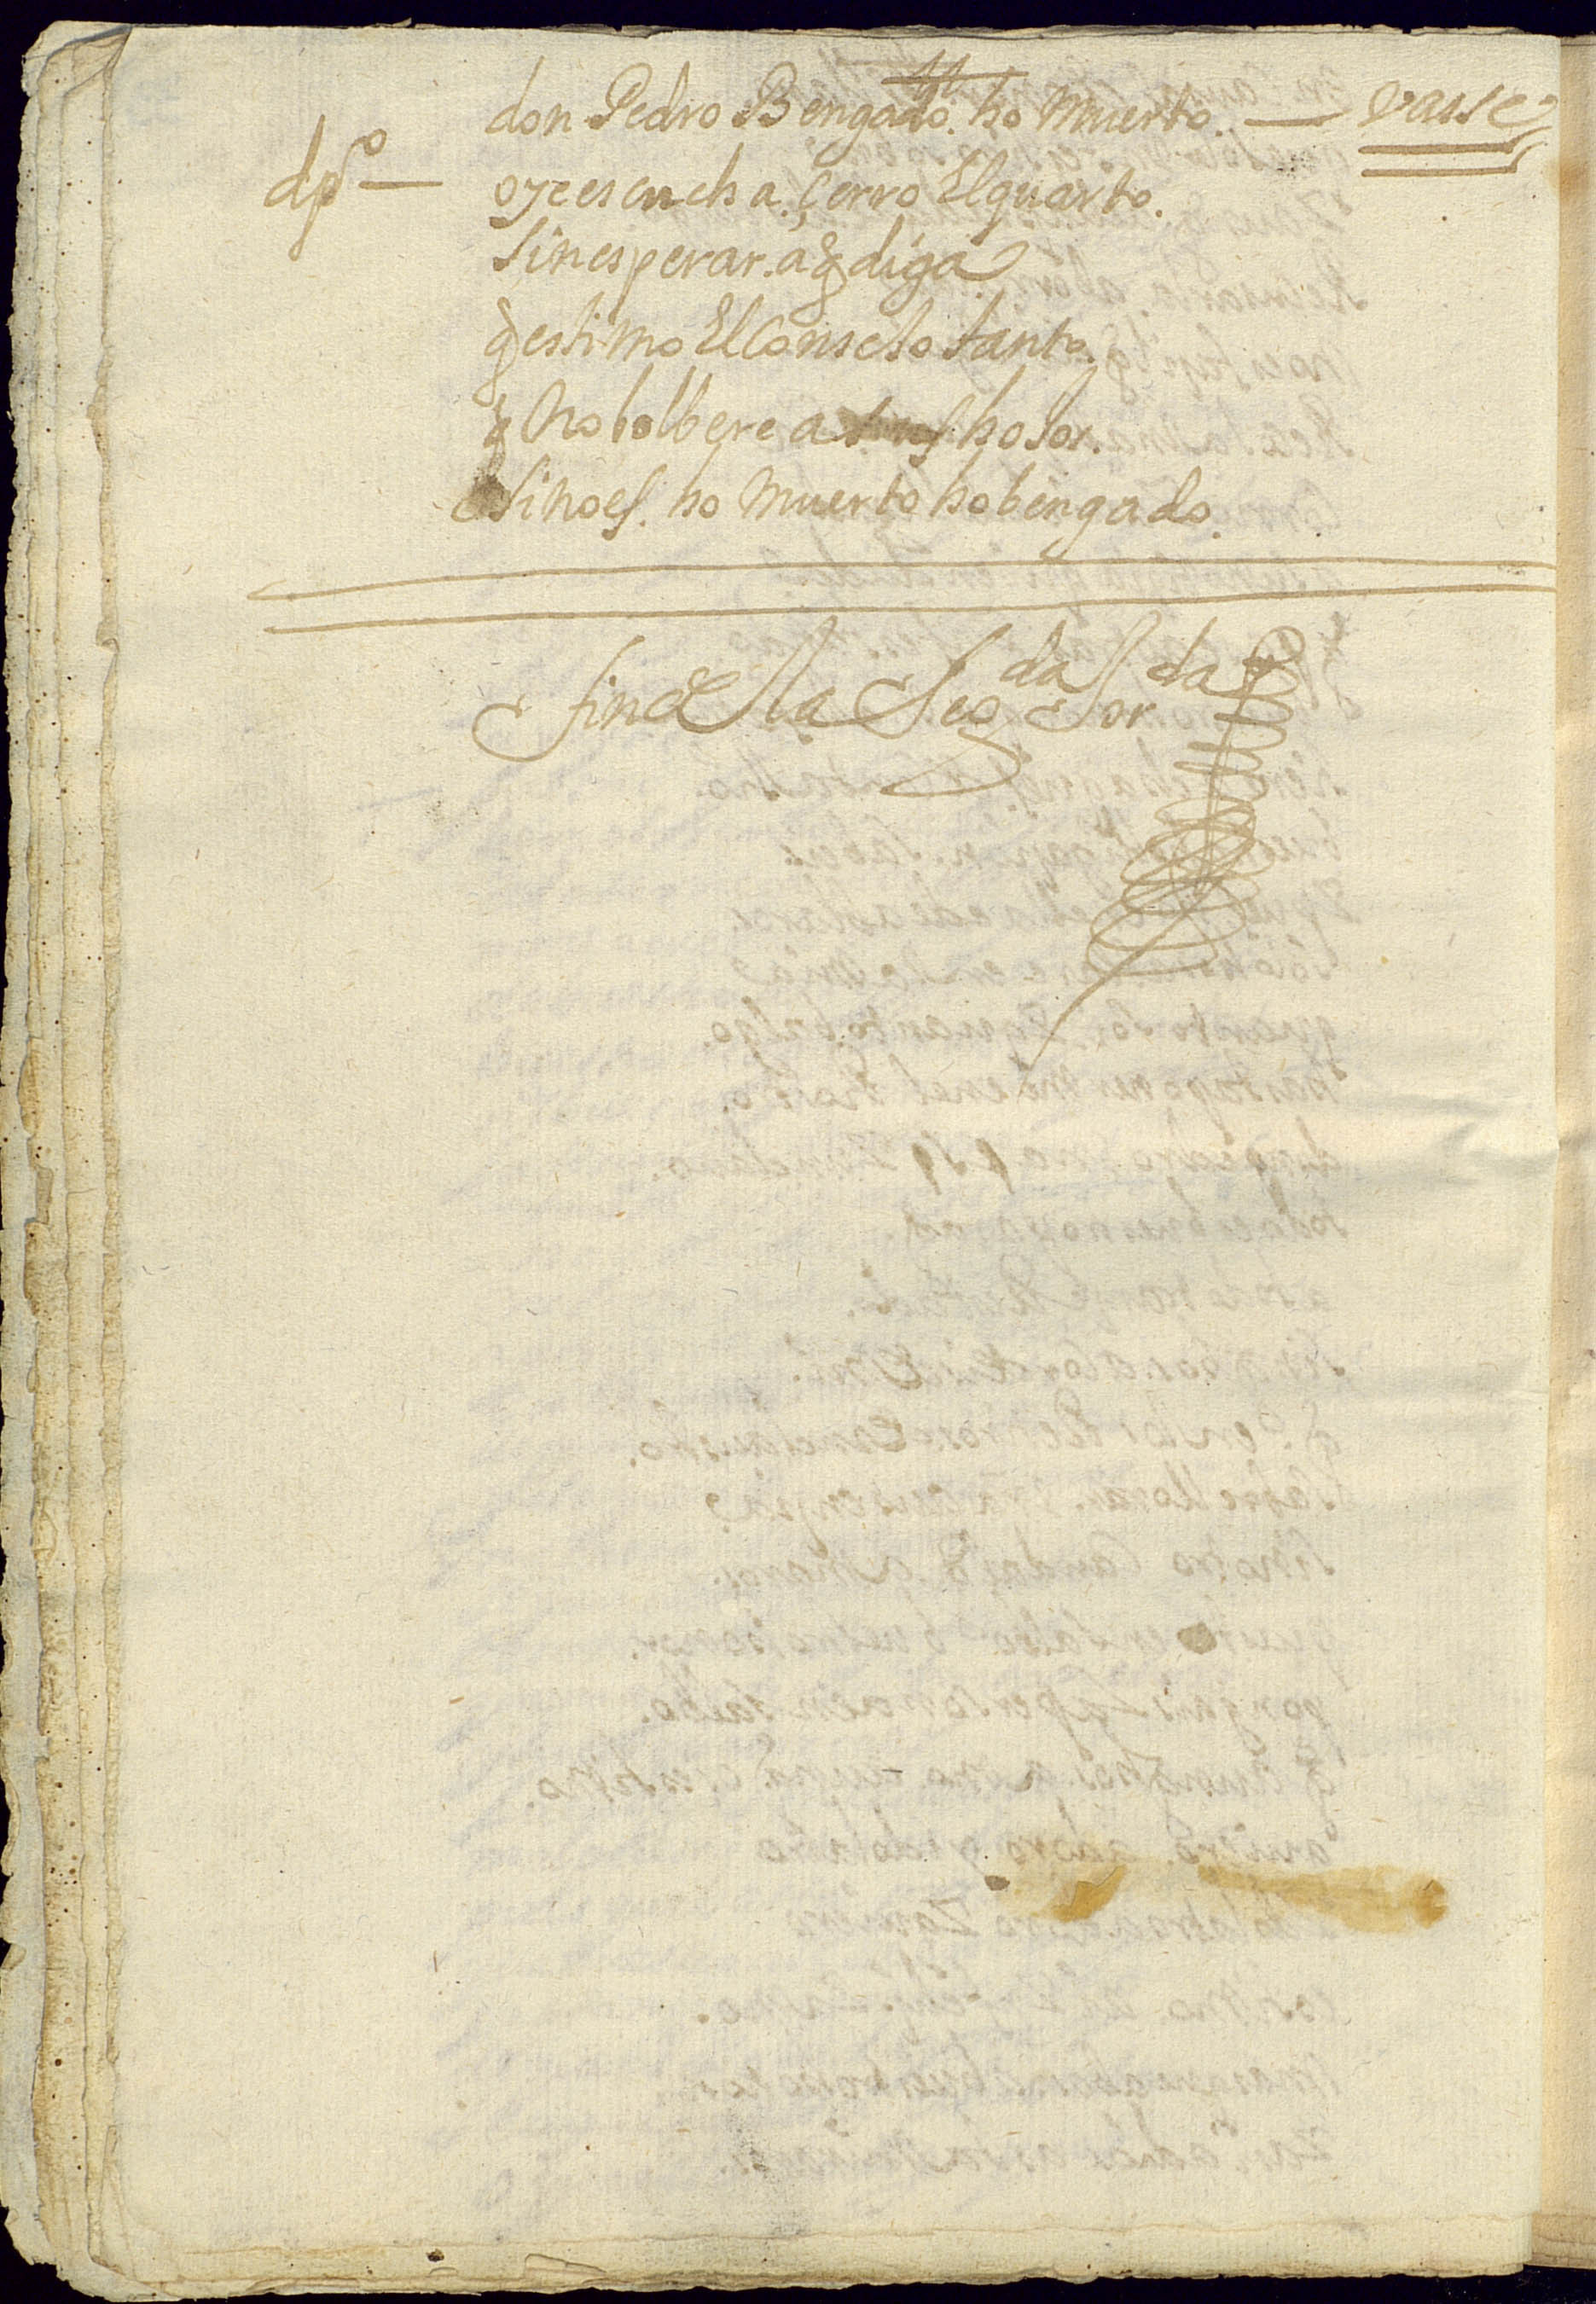 don Pedro Bengado. ho muerto. — vasse
dpº — oye escucha. çerro El quarto.
sin esperar. a q̃ diga
q̃ estimo El Conseso tanto.
q̃ no bolbere a sus hosos.
sino es. ho muerto ho bengado.
fin de la Segda Jorda